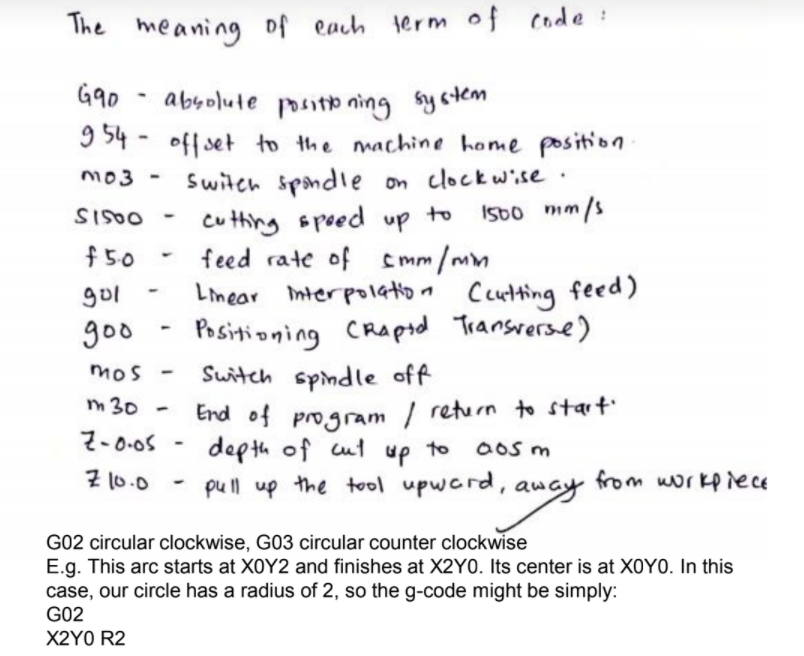 The meaning of each term of code :
G90 - absolute positioning system
g 54 - offset to the machine home position.
m03 - switch spindle on clockwise .
S1500 - cutting speed up to 1500 mm/s
f 5.0 - feed rate of 5mm/min
g01 - Linear Interpolation (cutting feed)
g00 - Positioning (Rapid Transverse)
m05 - Switch spindle off
m30 - End of program / return to start.
Z-0.05 - depth of cut up to 0.05 m
Z 10.0 - pull up the tool upward, away from workpiece
G02 circular clockwise, G03 circular counter clockwise
E.g. This arc starts at X0Y2 and finishes at X2Y0. Its center is at X0Y0. In this
case, our circle has a radius of 2, so the g-code might be simply:
G02
X2Y0 R2